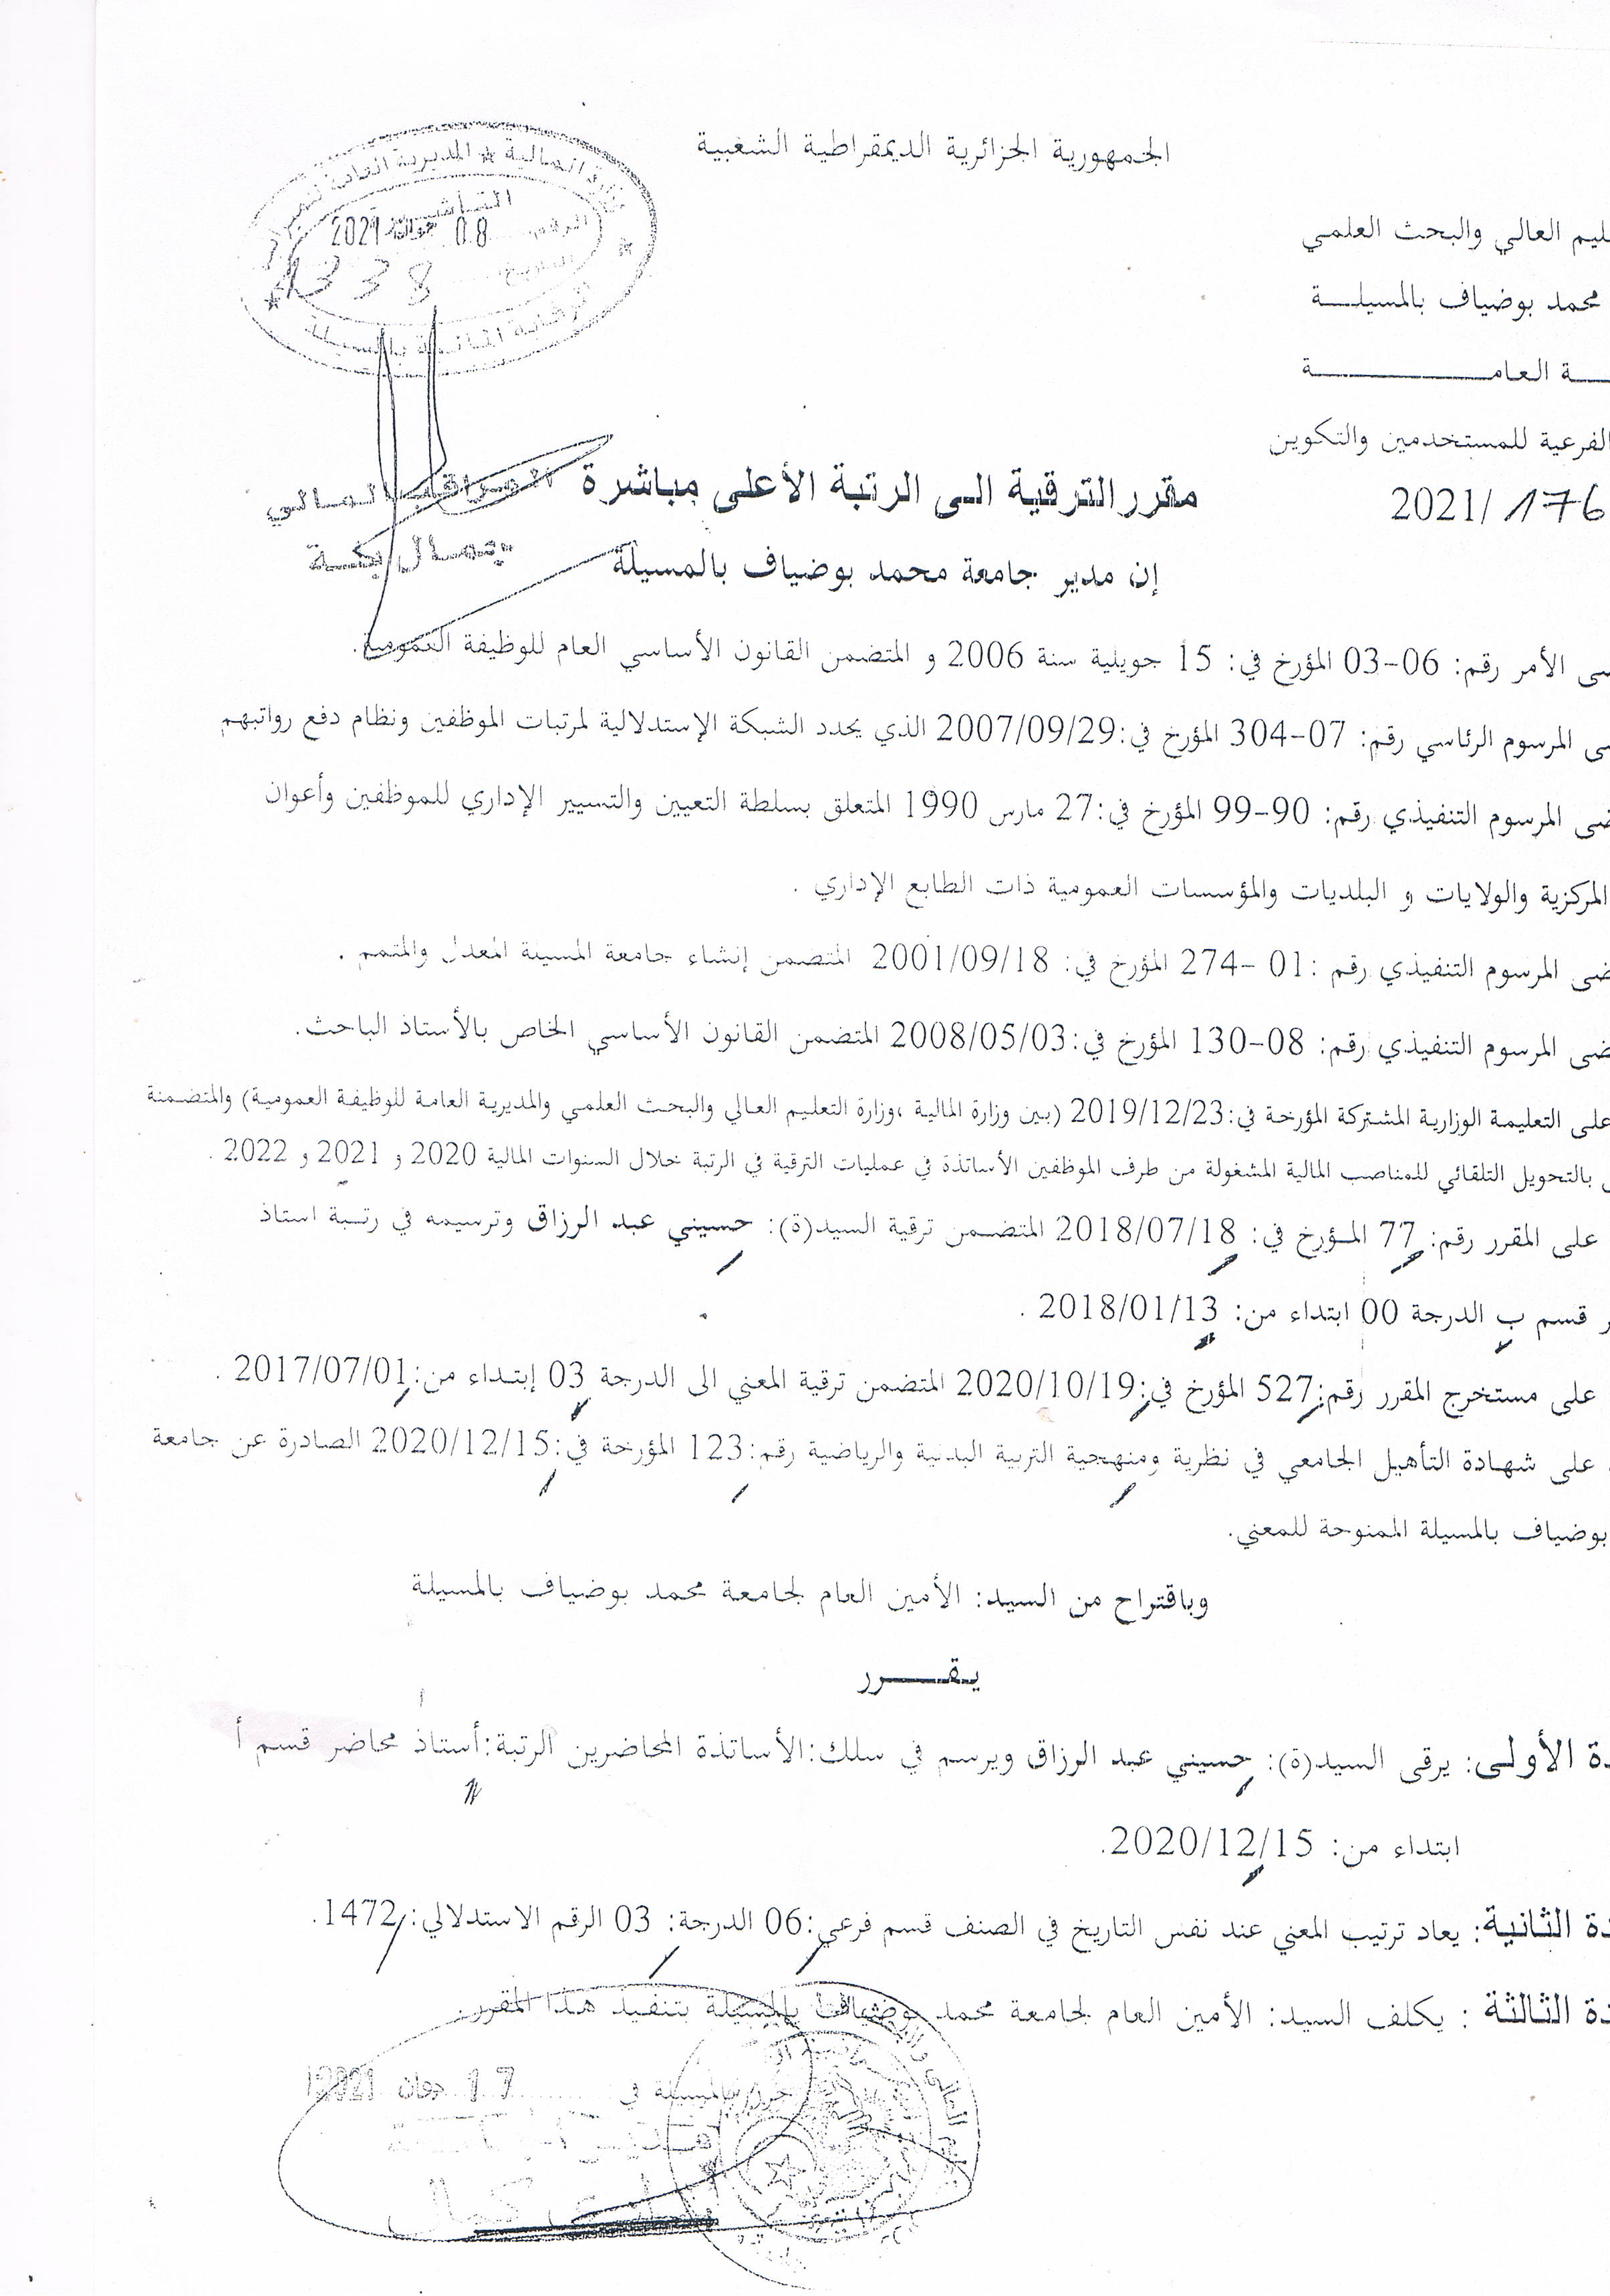 الجمهورية الجزائرية الديمقراطية الشعبية
ليم العالي والبحث العلمي
محمد بوضياف بالمسيلـــــة
ـة العامـــــــــــة
الفرعية للمستخدمين والتكوين
176 /2021
التأشيرة
الرقم 08 جوان 2021
التاريخ
1338
المراقب المالي
مقرر الترقية الى الرتبة الأعلى مباشرة
إن مدير جامعة محمد بوضياف بالمسيلة
ى الأمر رقم: 06-03 المؤرخ في: 15 جويلية سنة 2006 و المتضمن القانون الأساسي العام للوظيفة العمومية.
ى المرسوم الرئاسي رقم: 07-304 المؤرخ في:2007/09/29 الذي يحدد الشبكة الإستدلالية لمرتبات الموظفين ونظام دفع رواتبهم
ضى المرسوم التنفيذي رقم: 90-99 المؤرخ في:27 مارس 1990 المتعلق بسلطة التعيين والتسيير الإداري للموظفين وأعوان
المركزية والولايات و البلديات والمؤسسات العمومية ذات الطابع الإداري .
ضى المرسوم التنفيذي رقم :01 -274 المؤرخ في: 2001/09/18 المتضمن إنشاء جامعة المسيلة المعدل والمتمم .
ضى المرسوم التنفيذي رقم: 08-130 المؤرخ في:2008/05/03 المتضمن القانون الأساسي الخاص بالأستاذ الباحث.
على التعليمة الوزارية المشتركة المؤرخة في:2019/12/23 (بين وزارة المالية ،وزارة التعليم العالي والبحث العلمي والمديرية العامة للوظيفة العمومية) والمتضمنة
بالتحويل التلقائي للمناصب المالية المشغولة من طرف الموظفين الأساتذة في عمليات الترقية في الرتبة خلال السنوات المالية 2020 و 2021 و 2022 .
على المقرر رقم: 77 المؤرخ في: 2018/07/18 المتضمن ترقية السيد(ة): حسيني عبد الرزاق وترسيمه في رتبة استاذ
ر قسم ب الدرجة 00 ابتداء من: 2018/01/13 .
على مستخرج المقرر رقم:527 المؤرخ في:2020/10/19 المتضمن ترقية المعني الى الدرجة 03 إبتداء من:2017/07/01 .
على شهادة التأهيل الجامعي في نظرية ومنهجية التربية البدنية والرياضية رقم:123 المؤرخة في:2020/12/15 الصادرة عن جامعة
بوضياف بالمسيلة الممنوحة للمعني.
وباقتراح من السيد: الأمين العام لجامعة محمد بوضياف بالمسيلة
يقـــــرر
دة الأولى: يرقى السيد(ة): حسيني عبد الرزاق ويرسم في سلك:الأساتذة المحاضرين الرتبة:أستاذ محاضر قسم أ
ابتداء من: 2020/12/15.
دة الثانية: يعاد ترتيب المعني عند نفس التاريخ في الصنف قسم فرعي:06 الدرجة: 03 الرقم الاستدلالي:1472.
دة الثالثة : يكلف السيد: الأمين العام لجامعة محمد بوضياف بالمسيلة بتنفيذ هذا المقرر.
حرر بالمسيلة في 17 جوان 2021